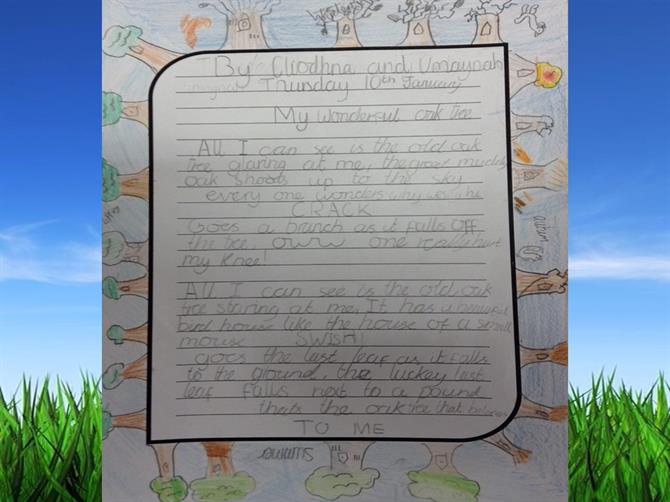 By Cliodhna and Umaynah
Thursday 10th January
My wonderful oak tree
All I can see is the old oak
tree glaring at me, the great muddy
oak shoots up to the sky
every one wonders why
CRACK
Goes a brunch as it falls off
the tree, oww one really hurt
my knee!
All I can see is the old oak
tree staring at me. It has a beautiful
bird house like the house of a small
mouse SWISH!
goes the last leaf as it falls
to the ground, the luckey last
leaf falls next to a pound
thats the oak tree that belongs
TO ME
autum
summe